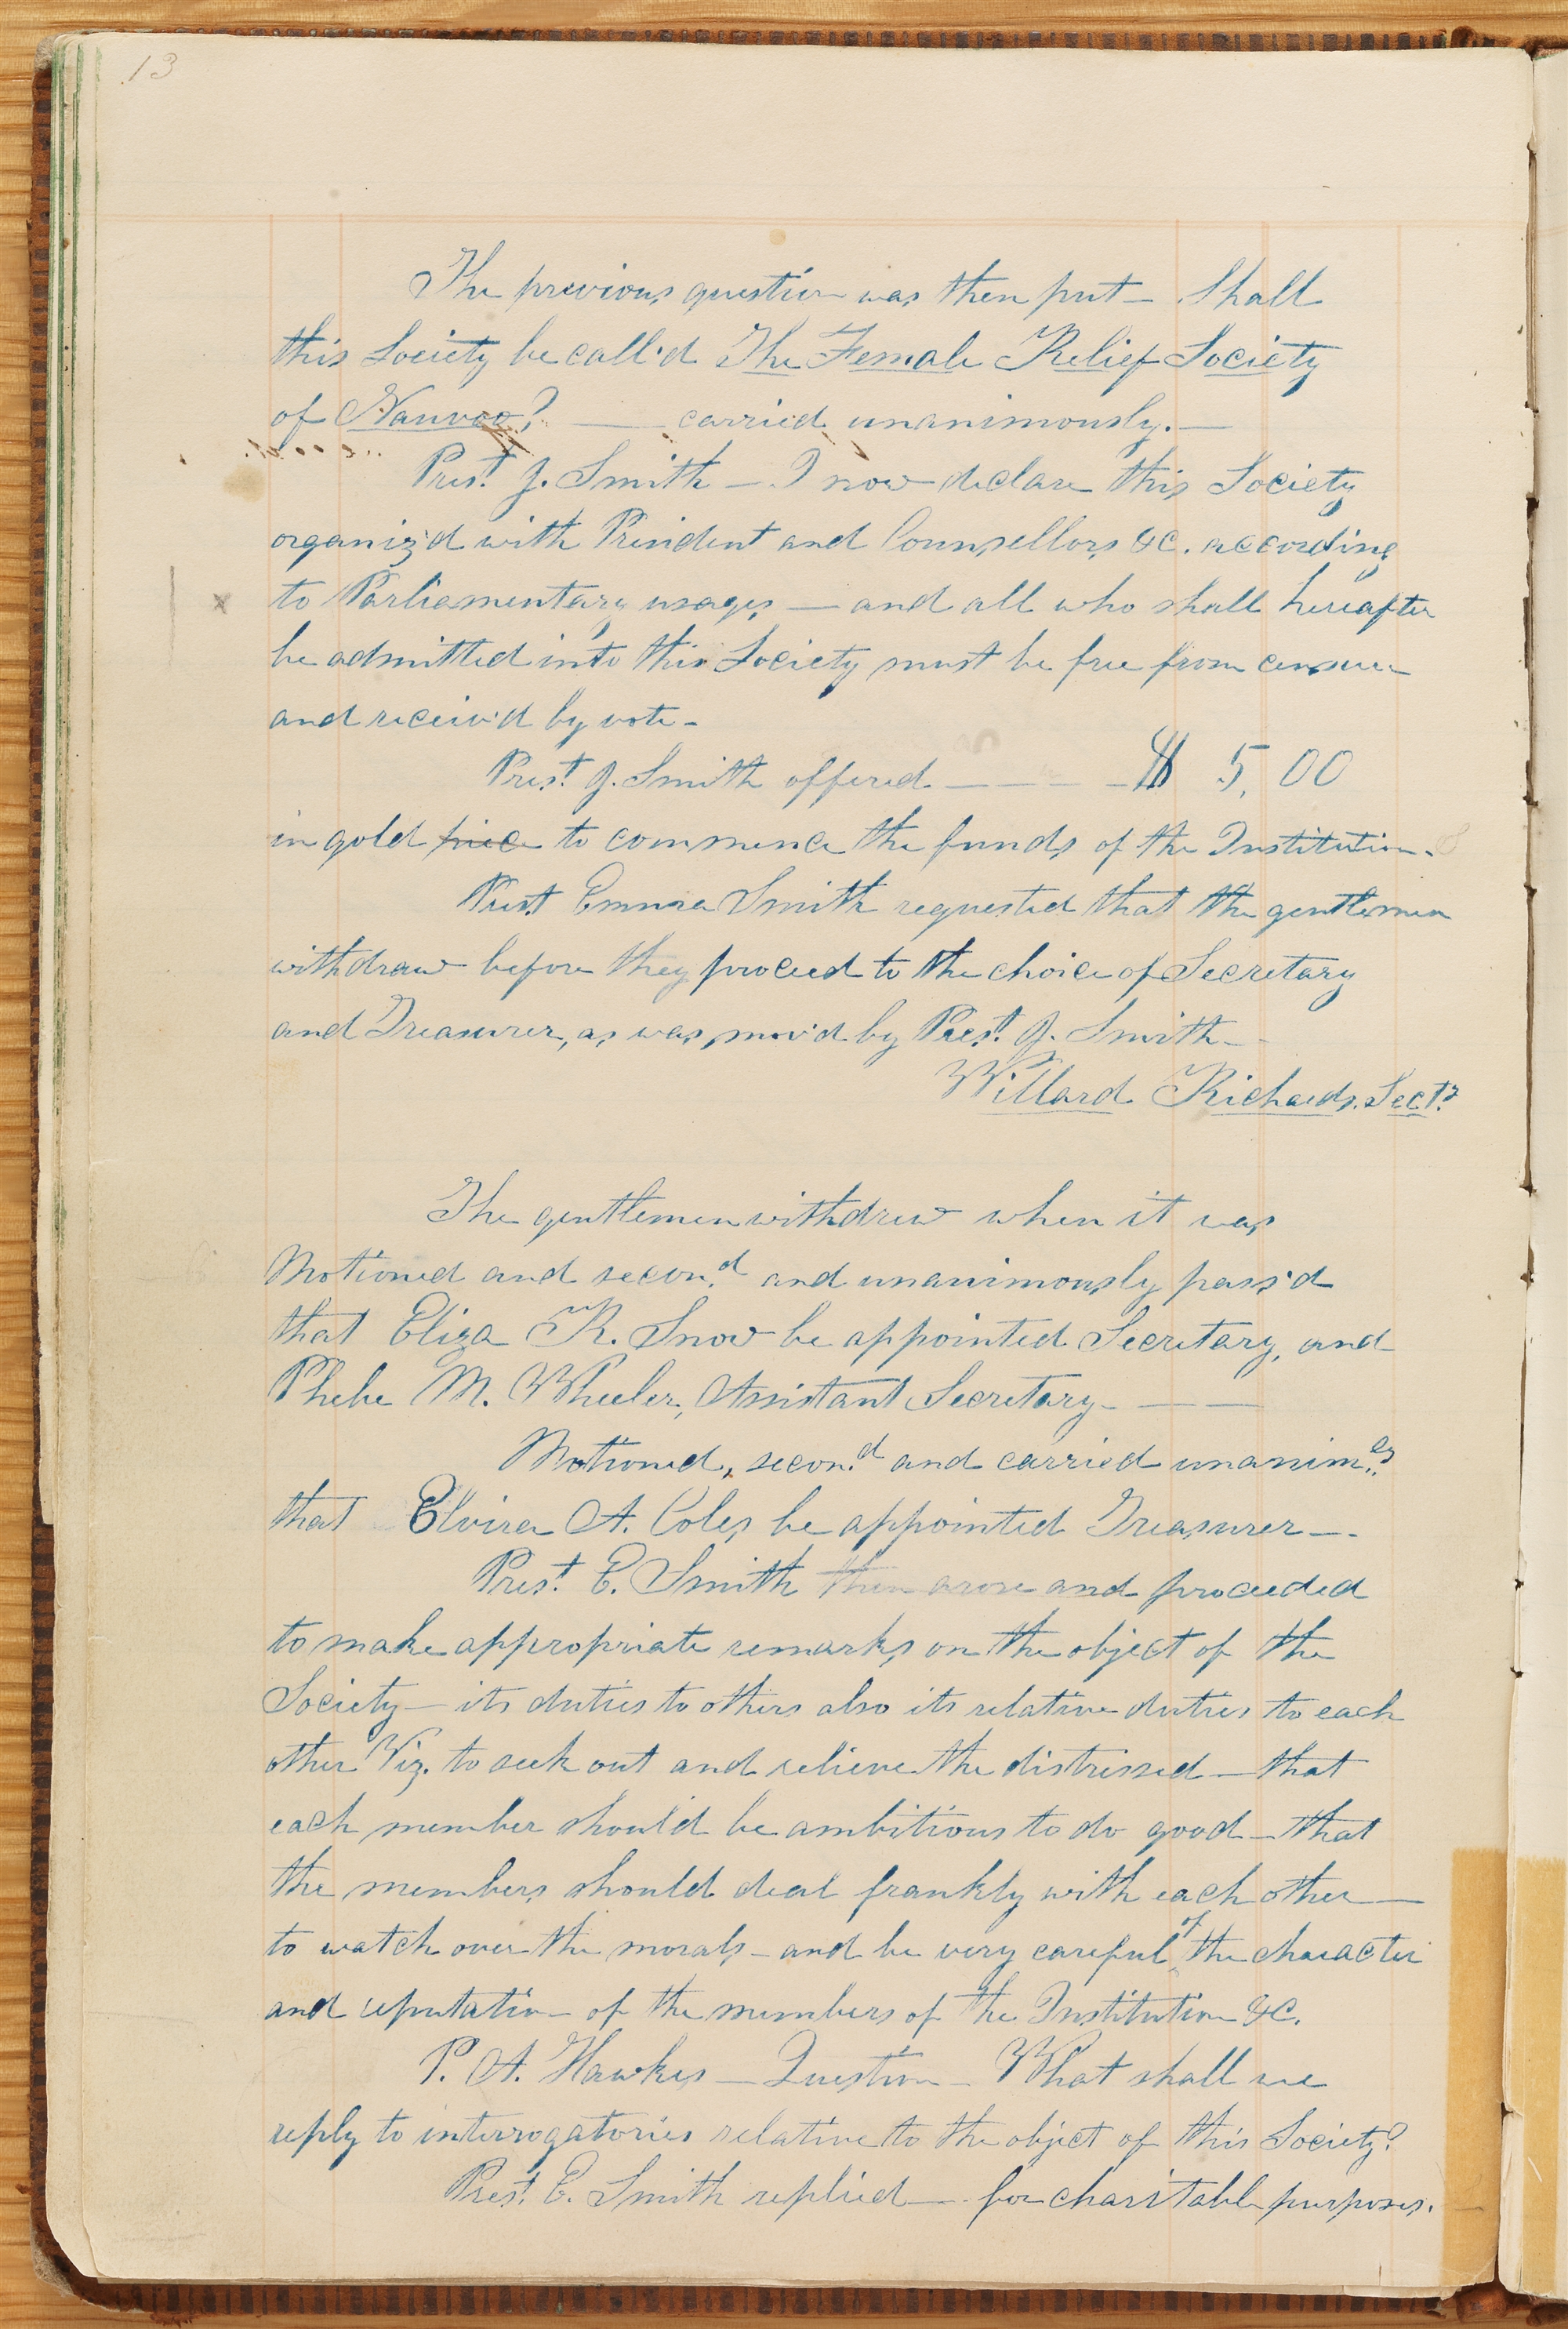 13
The previous question was then put — Shall
this Society be call'd The Female Relief Society
of Nauvoo? — carried unanimously. —
Prest. J. Smith — I now declare this Society
organiz'd with President and Counsellors &c. according
to Parliamentary usages — and all who shall hereafter
be admitted into this Society must be free from censure
and receiv'd by vote —
Prest. J. Smith offered — — — $ 5,00
in gold piece to commence the funds of the Institution.
Prest. Emma Smith requested that the gentlemen
withdraw before they proceed to the choice of Secretary
and Treasurer, as was mov'd by Prest. J. Smith —
Willard Richards. Secty.
The gentlemen withdrew when it was
Motioned and secon.d and unanimously pass'd
that Eliza R. Snow be appointed Secretary, and
Phebe M. Wheeler, Assistant Secretary — — —
Motioned, secon.d and carried unanim.ly
that Elvira A. Coles be appointed Treasurer —
Prest. E. Smith then arose and proceeded
to make appropriate remarks on the object of the
Society — its duties to others also its relative duties to each
other Viz. to seek out and relieve the distressed — that
each member should be ambitious to do good — that
the members should deal frankly with each other —
to watch over the morals — and be very careful of the character
and reputation — of the members of the Institution &c.
P. A. Hawkes — Question — What shall we
reply to interrogatories relative to the object of this Society?
Prest. E. Smith replied — for charitable purposes.